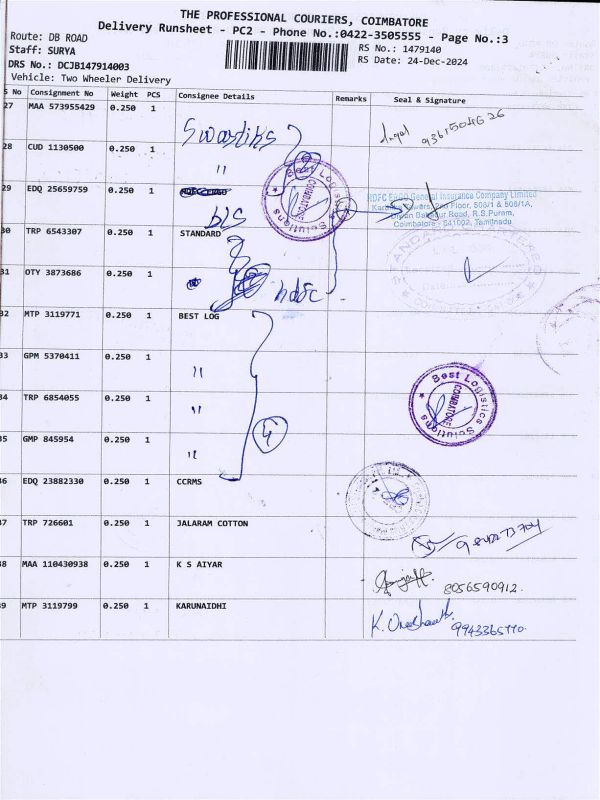 THE PROFESSIONAL COURIERS, COIMBATORE
Delivery Runsheet - PC2 - Phone No.:0422-3505555 - Page No.:3
Route: DB ROAD
Staff: SURYA
DRS No.: DCJB147914003
Vehicle: Two Wheeler Delivery
RS No.: 1479140
RS Date: 24-Dec-2024
S No Consignment No Weight PCS Consignee Details Remarks Seal & Signature
27 MAA 573955429 0.250 1 Swastiks 9361504626
28 CUD 1130500 0.250 1 "
29 EDQ 25659759 0.250 1
HDFC ERGO General Insurance Company Limited
Floor, 506/1 & 508/1A,
Road, R.S.Puram,
Coimbatore - 641002, Tamilnadu
30 TRP 6543307 0.250 1 STANDARD
31 OTY 3873686 0.250 1 hdfc
Best Logistics Solutions
COIMBATORE
32 MTP 3119771 0.250 1 BEST LOG
33 GPM 5370411 0.250 1 "
34 TRP 6854055 0.250 1 "
35 GMP 845954 0.250 1 "
Best Logistics Solutions
COIMBATORE
36 EDQ 23882330 0.250 1 CCRMS
37 TRP 726601 0.250 1 JALARAM COTTON
38 MAA 110430938 0.250 1 K S AIYAR 8056590912.
39 MTP 3119799 0.250 1 KARUNAIDHI